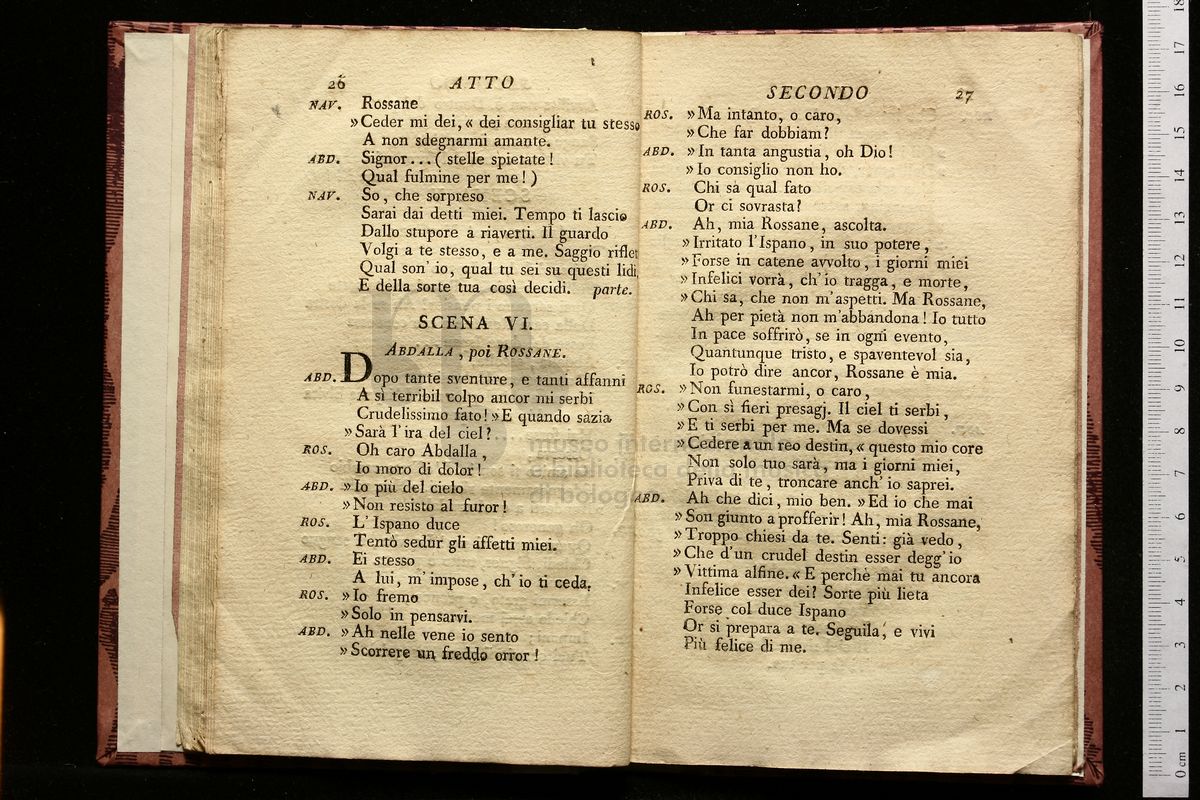 26 ATTO
NAV. Rossane
»Ceder mi dei, « dei consigliar tu stesso
A non sdegnarmi amante.
ABD. Signor... ( stelle spietate!
Qual fulmine per me! )
NAV. So, che sorpreso
Sarai dai detti miei. Tempo ti lascio
Dallo stupore a riaverti. Il guardo
Volgi a te stesso, e a me. Saggio riflet
Qual son' io, qual tu sei su questi lidi,
E della sorte tua così decidi. parte.
SCENA VI.
ABDALLA, poi ROSSANE.
ABD. Dopo tante sventure, e tanti affanni
A sì terribil colpo ancor mi serbi
Crudelissimo fato! » E quando sazia
» Sarà l'ira del ciel?
ROS. Oh caro Abdalla,
Io moro di dolor!
ABD. » Io più del cielo
» Non resisto al furor!
ROS. L' Ispano duce
Tentò sedur gli affetti miei.
ABD. Ei stesso
A lui, m' impose, ch' io ti ceda.
ROS. » Io fremo
» Solo in pensarvi.
ABD. » Ah nelle vene io sento
» Scorrere un freddo orror!
SECONDO 27
ROS. » Ma intanto, o caro,
» Che far dobbiam?
ABD. » In tanta angustia, oh Dio!
» Io consiglio non ho.
ROS. Chi sà qual fato
Or ci sovrasta?
ABD. Ah, mia Rossane, ascolta.
» Irritato l'Ispano, in suo potere,
» Forse in catene avvolto, i giorni miei
» Infelici vorrà, ch' io tragga, e morte,
» Chi sa, che non m'aspetti. Ma Rossane,
Ah per pietà non m'abbandona! Io tutto
In pace soffrirò, se in ogni evento,
Quantunque tristo, e spaventevol sia,
Io potrò dire ancor, Rossane è mia.
ROS. » Non funestarmi, o caro,
» Con sì fieri presagj. Il ciel ti serbi,
» E ti serbi per me. Ma se dovessi
» Cedere a un reo destin, « questo mio core
Non solo tuo sarà, ma i giorni miei,
Priva di te, troncare anch' io saprei.
ABD. Ah che dici, mio ben. » Ed io che mai
» Son giunto a profferir! Ah, mia Rossane,
» Troppo chiesi da te. Senti: già vedo,
» Che d'un crudel destin esser degg' io
» Vittima alfine. « E perchè mai tu ancora
Infelice esser dei? Sorte più lieta
Forse col duce Ispano
Or si prepara a te. Seguila, e vivi
Più felice di me.